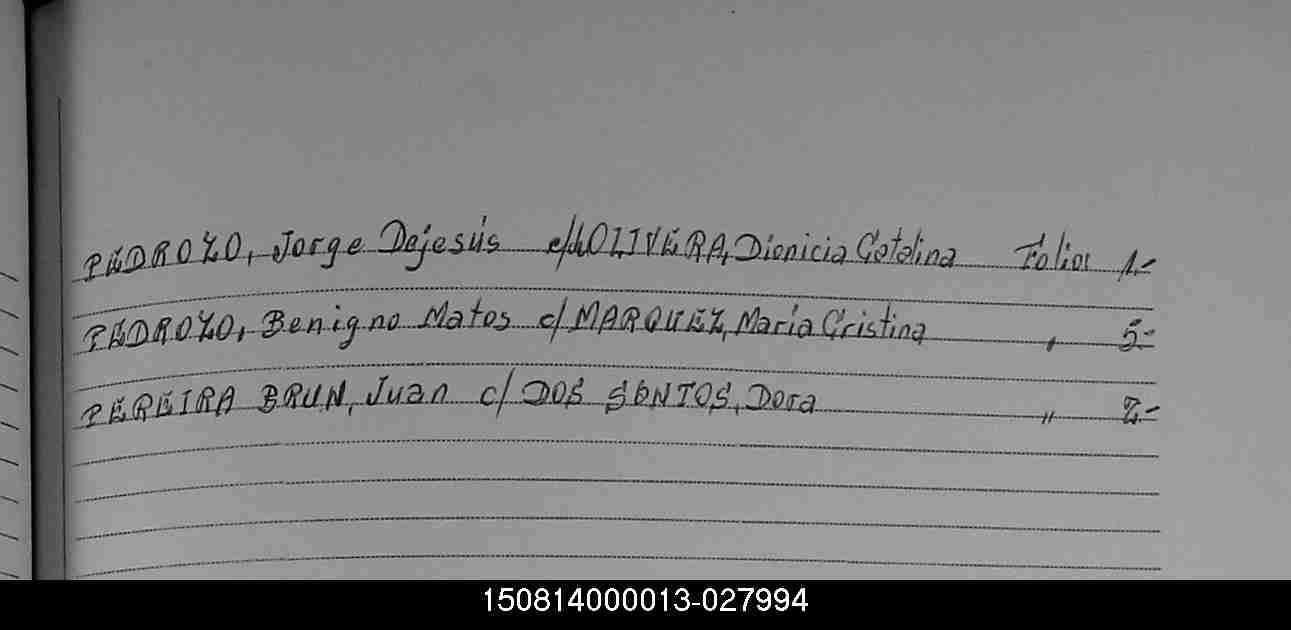 PEDROZO, Jorge Dejesús c/ OLIVERA, Dionicia Catalina Folios 1.-
PEDROZO, Benigno Matos c/ MARQUEZ, María Cristina " 5.-
PEREIRA BRUN, Juan c/ DOS SANTOS, Dora " 2.-
150814000013-027994